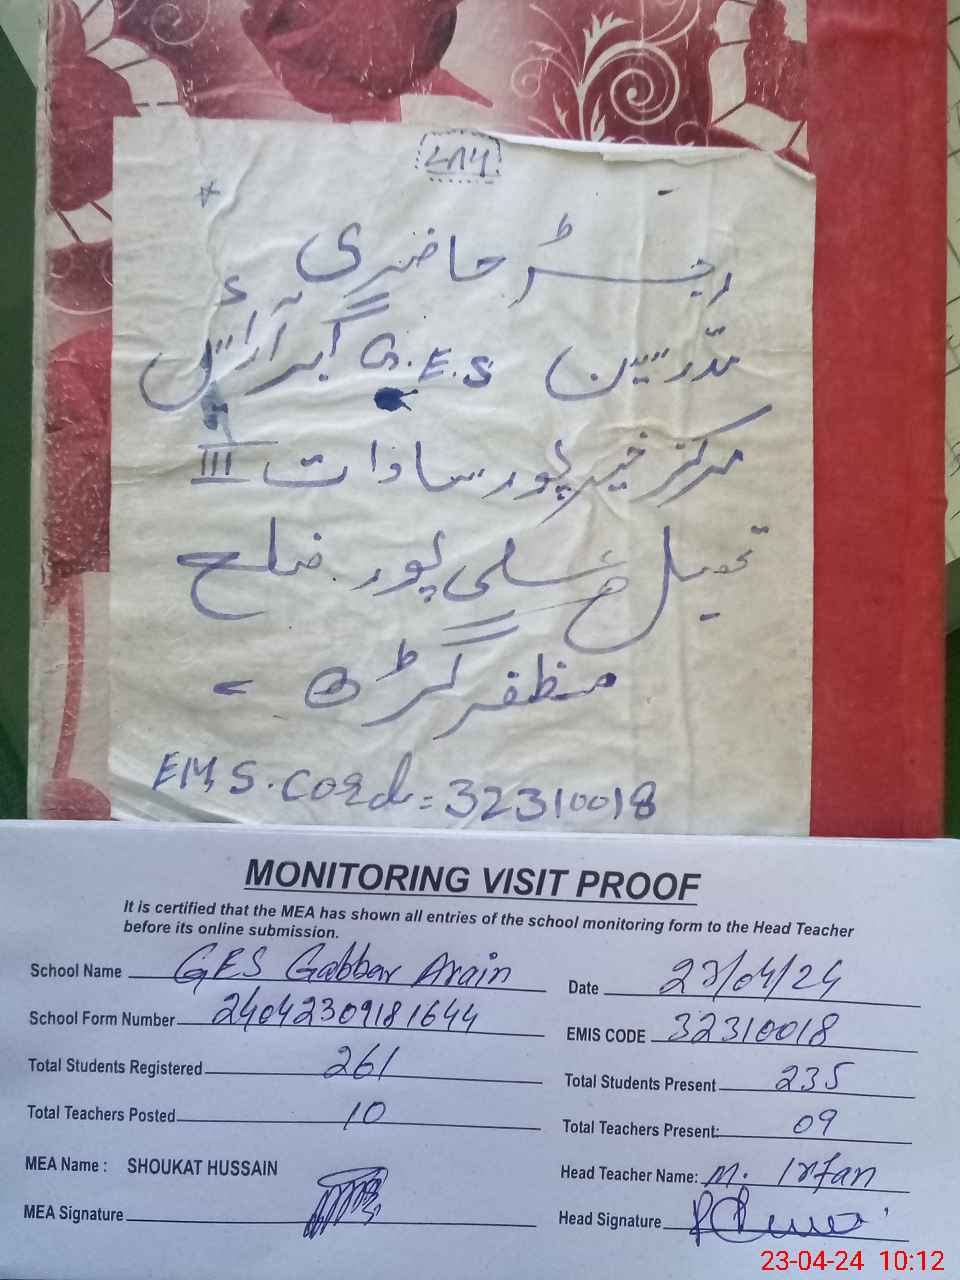 ۷۸۶
رجسٹر حاضری
مدرسین G.E.S گبر آرائیں
مرکز خیر پور سادات III
تحصیل علی پور ضلع
مظفر گڑھ
EMS.Cord = 32310018
MONITORING VISIT PROOF
It is certified that the MEA has shown all entries of the school monitoring form to the Head Teacher
before its online submission.
School Name GES Gabbar Arain Date 23/04/24
School Form Number 24042309181644 EMIS CODE 32310018
Total Students Registered 261 Total Students Present 235
Total Teachers Posted 10 Total Teachers Present: 09
MEA Name : SHOUKAT HUSSAIN Head Teacher Name: M. Irfan
MEA Signature Head Signature
23-04-24 10:12